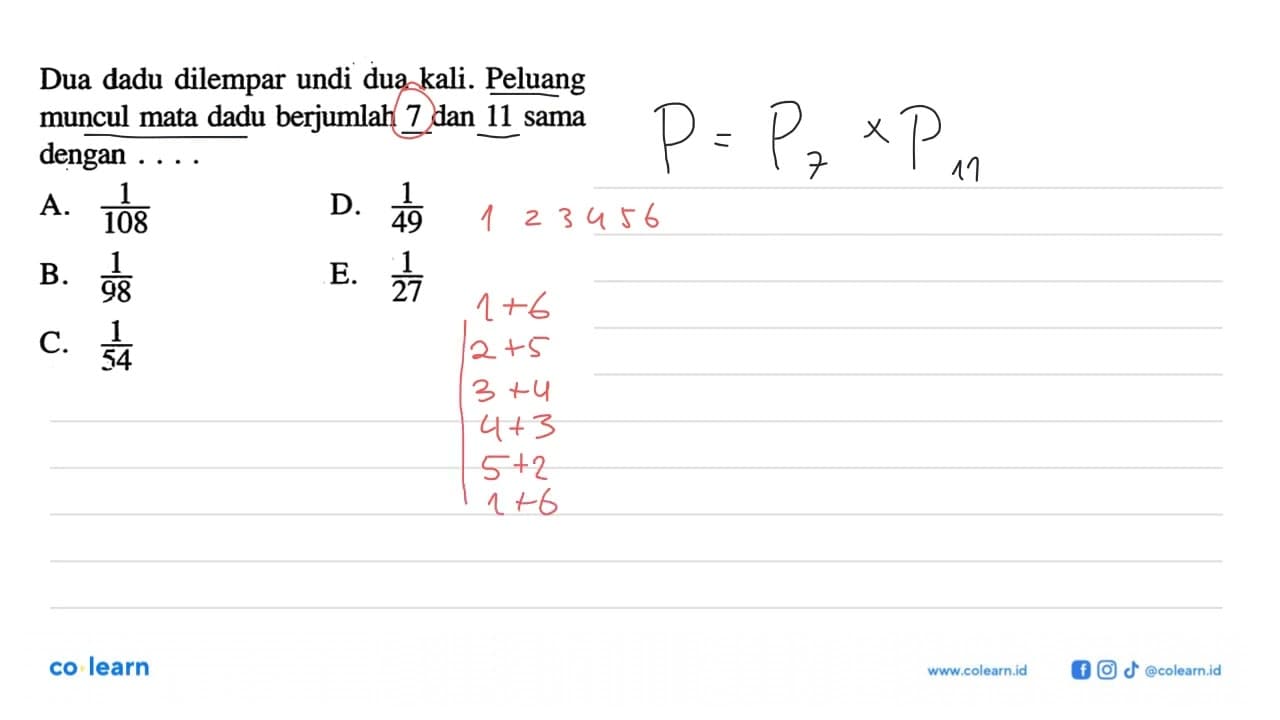 Dua dadu dilempar undi dua kali. Peluang
muncul mata dadu berjumlah 7 dan 11 sama
dengan . . . .
A. 1/108
B. 1/98
C. 1/54
D. 1/49
E. 1/27
P = P₇ × P₁₁
1 2 3 4 5 6
1+6
2+5
3+4
4+3
5+2
1+6
co learn
www.colearn.id
@colearn.id